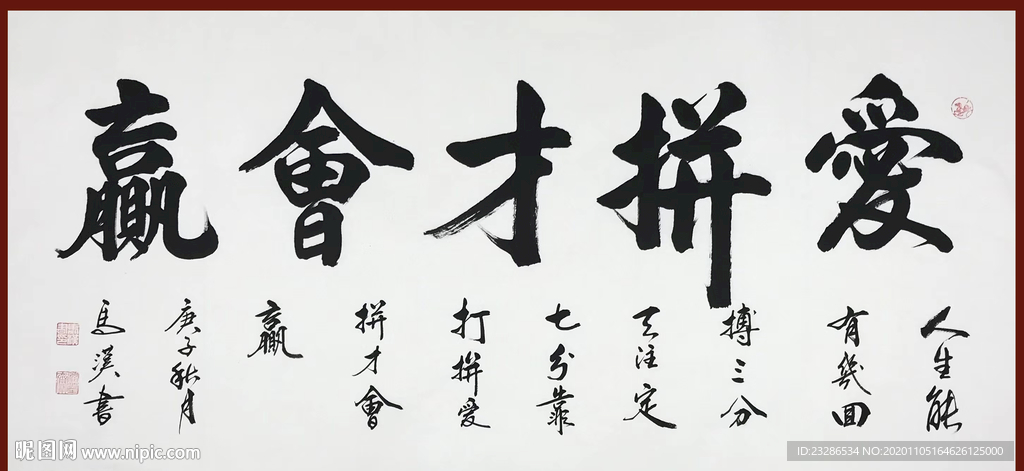 愛拼才會贏
人生能
有幾回
搏三分
天注定
七分靠
打拼愛
拼才會
贏
庚子秋月
馬漢書
昵图网 www.nipic.com
ID:23286534 NO:20201105164626125000